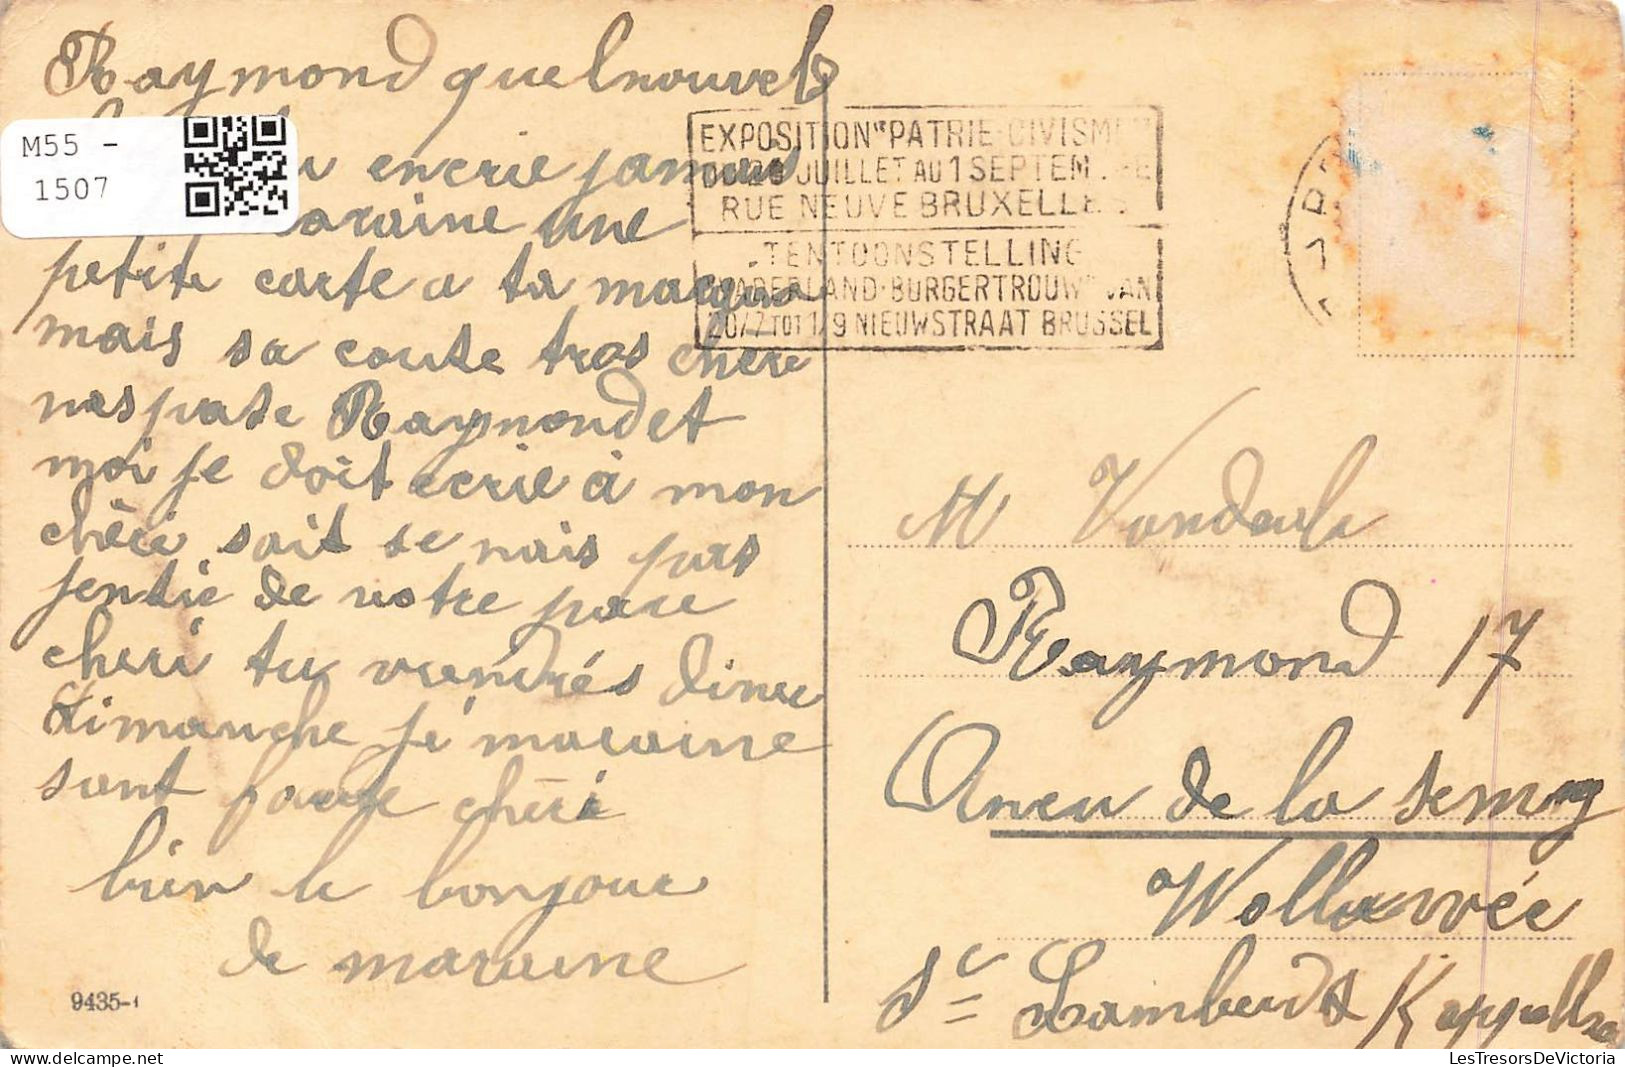 Raymond quel nouvel
encrie jamais
maraine une
petite carte a ta
mais sa coute tros chere
nas pase Raymond et
moi je doit ecrie à mon
chèri soit se nais pas
jentie de votre pare
cheri tu vrendrés diner
dimanche je maraine
sont parte chèri
bien le bonjour
de maraine
9435-1
M55 -
1507
EXPOSITION "PATRIE-CIVISME"
DU 20 JUILLET AU 1 SEPTEMBRE
RUE NEUVE BRUXELLES
TENTOONSTELLING
"VADERLAND-BURGERTROUW" VAN
20/7 TOT 1/9 NIEUWSTRAAT BRUSSEL
M Vandaule
Raymond 17
Aneu de la Semoy
Wolluwée
St Lamberdt Kappelle
LesTresorsDeVictoria